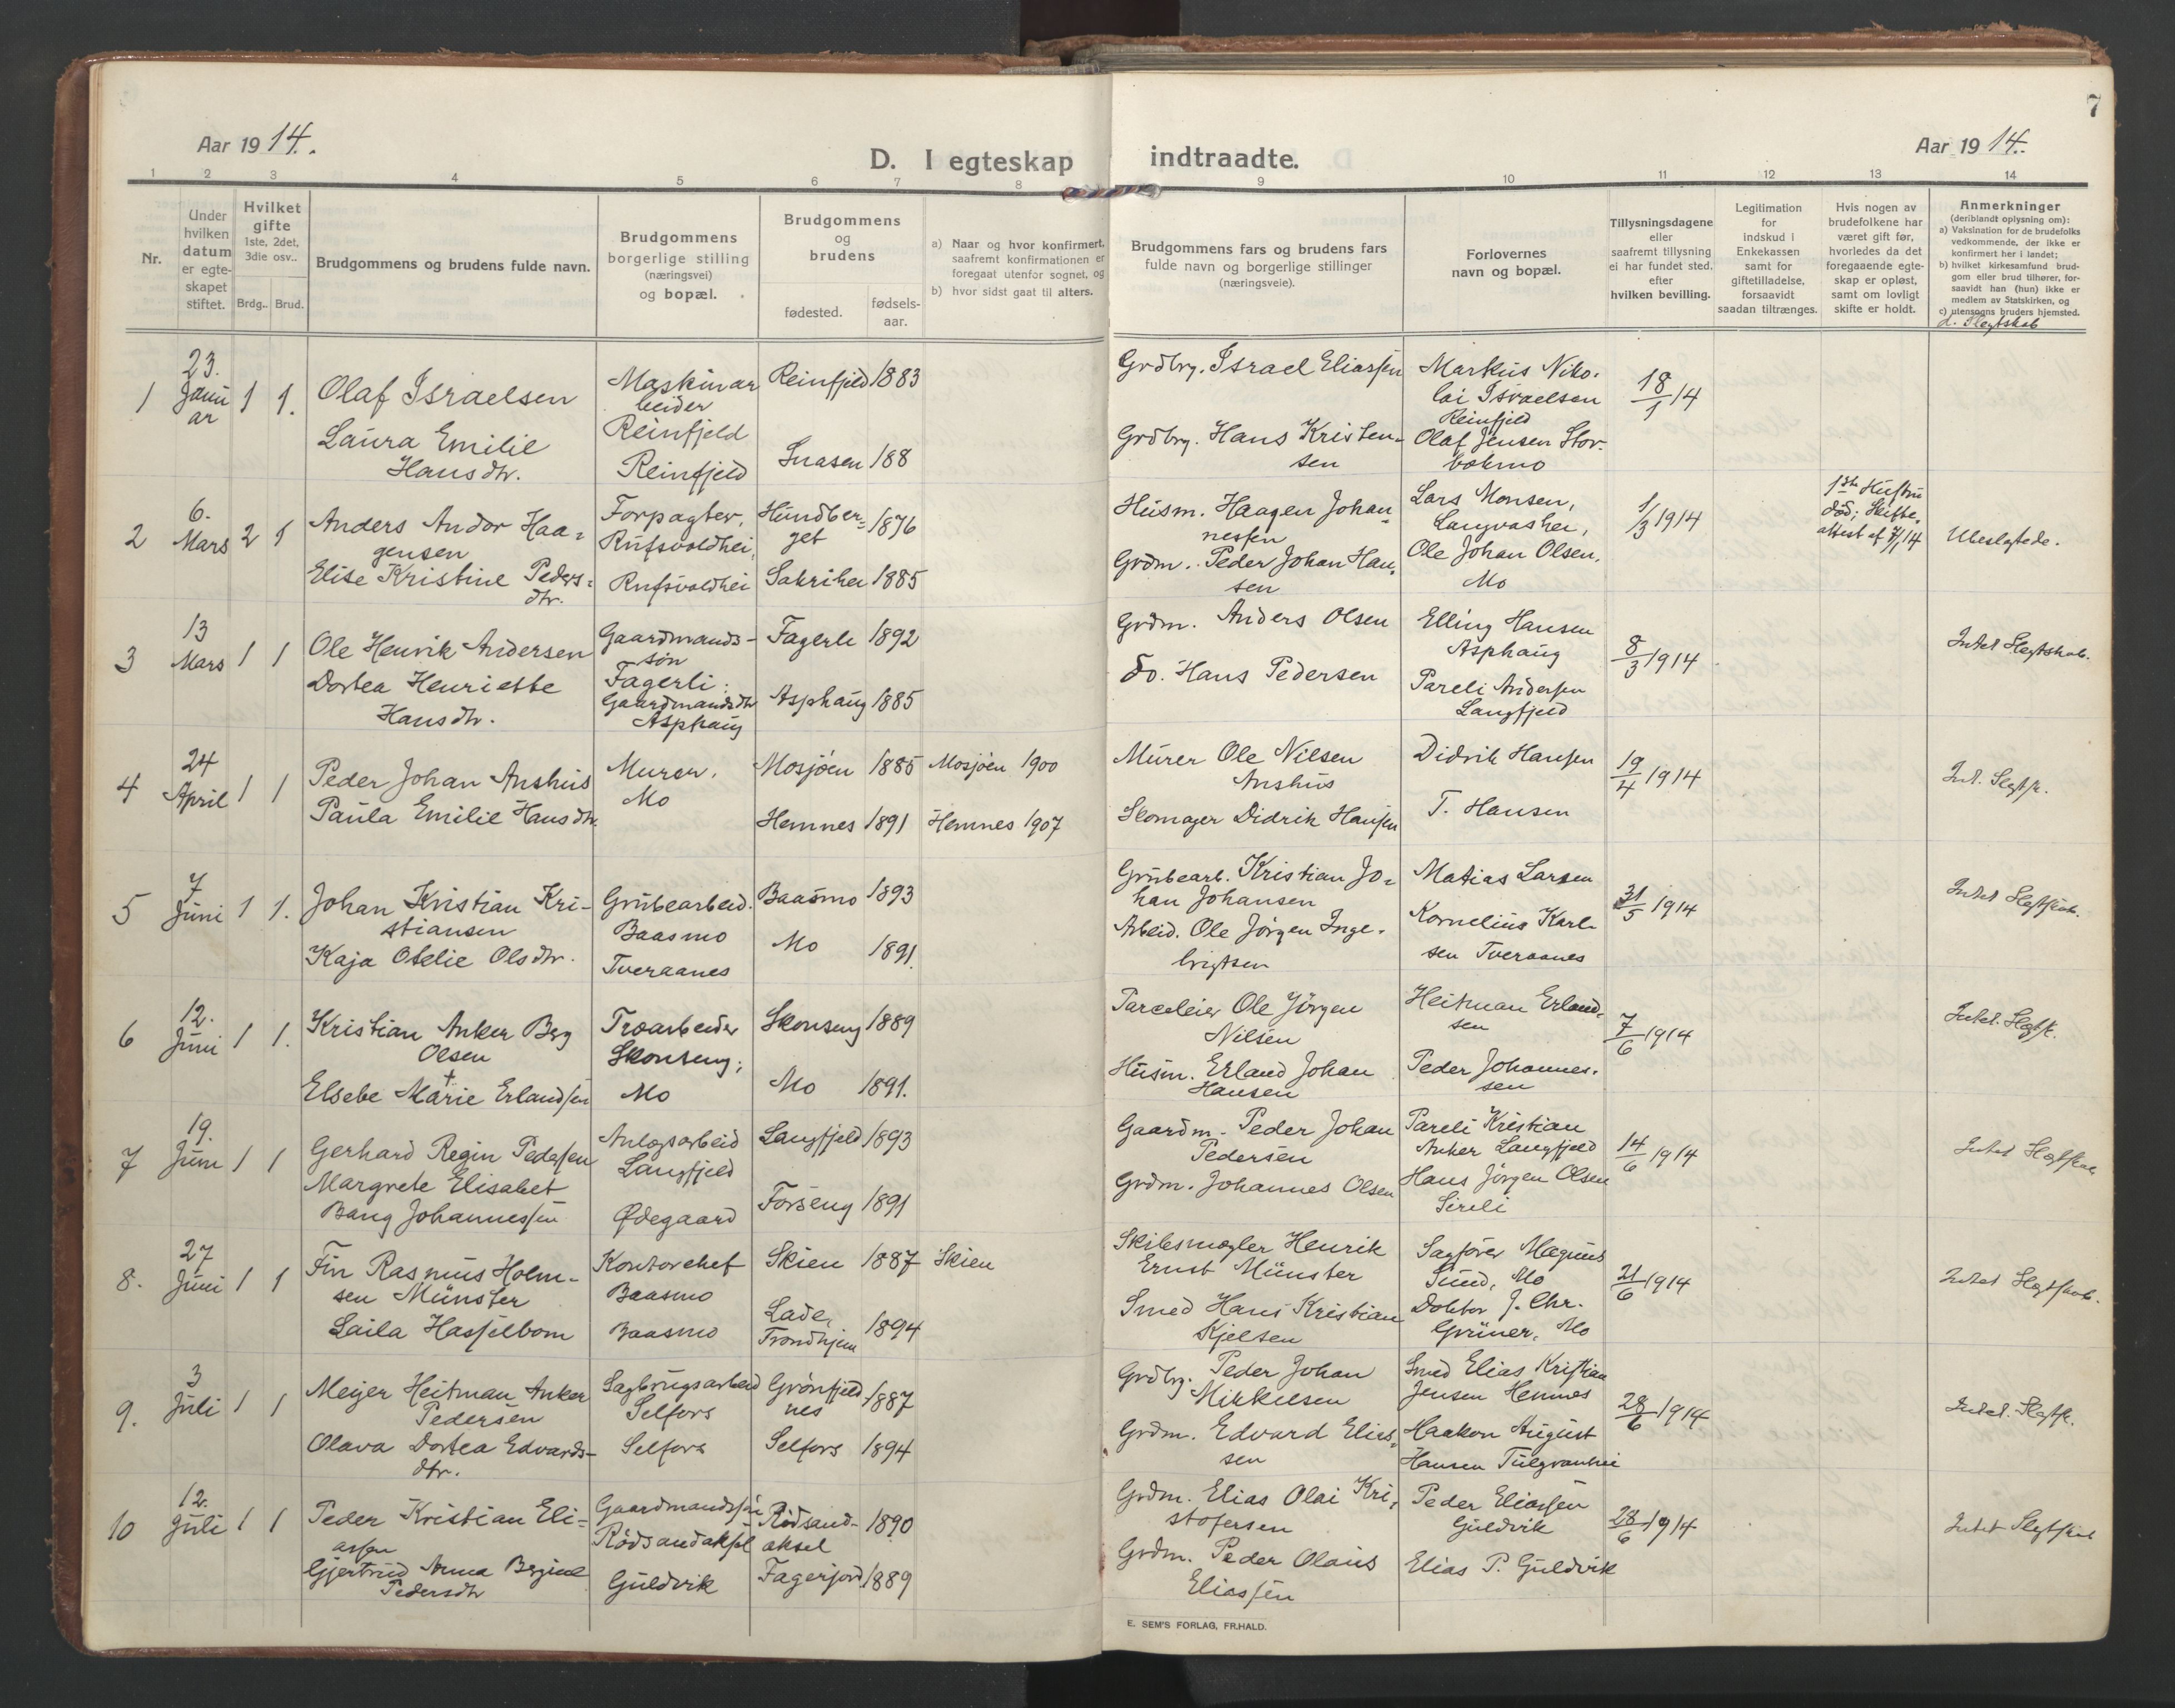 7
Aar 1914.
D. I egteskap indtraadte.
Aar 1914.
1 2 3 4 5 6 7 8 9 10 11 12 13 14
Nr.
Under hvilken datum er egte-skapet stiftet.
Hvilket gifte 1ste, 2det, 3die osv..
Brdg.. Brud.
Brudgommens og brudens fulde navn.
Brudgommens borgerlige stilling (næringsvei) og bopæl.
Brudgommens og brudens
fødested. fødsels-aar.
a) Naar og hvor konfirmert, saafremt konfirmationen er foregaat utenfor sognet, og
b) hvor sidst gaat til alters.
Brudgommens fars og brudens fars fulde navn og borgerlige stillinger (næringsveie).
Forlovernes navn og bopæl.
Tillysningsdagene eller saafremt tillysning ei har fundet sted, efter hvilken bevilling.
Legitimation for indskud i Enkekassen samt for giftetilladelse, forsaavidt saadan tiltrænges.
Hvis nogen av brudefolkene har været gift før, hvorledes da det foregaaende egte-skap er opløst, samt om lovligt skifte er holdt.
Anmerkninger (deriblandt oplysning om):
a) Vaksination for de brudefolks vedkommende, der ikke er konfirmert her i landet;
b) hvilket kirkesamfund brud-gom eller brud tilhører, for-saavidt han (hun) ikke er medlem av Statskirken, og
c) utensogns bruders hjemsted.
d. Slegtskab
1 23. Janu ar 1 1. Olaf Israelsen Maskinar beider Reinfjeld Reinfjeld 1883 Grdbry. Israel Eliassen Markus Niko- lai Israelsen Reinfjeld 18/1 14
Laura Emilie Hansdtr. Reinfjeld Snasen 188 Grdbry. Hans Kristen- sen Olaf Jensen Stor-
2 6. Mars 2 1 Anders Andor Haa- gensen Forpagter, Rufsvoldhei, Hundber- get 1876 Husm. Haagen Johan- nessen Lars Monsen, Langvashei, 1/3 1914 1ste Hustru død; Skifte- attest af 7/1 14 Ubeslegtede.
Elise Kristine Peders- dtr. Rufsvoldhei Sakrihei 1885 Grdm. Peder Johan Han- sen Ole Johan Olsen, Mo
3 13 Mars 1 1 Ole Henrik Andersen Gaardmands- søn Fagerli; Fagerli 1892 Grdm. Anders Olsen Elling Hansen Asphaug 8/3 1914 Intet Slegtskab.
Dortea Henriette Hansdtr. Gaardmandsdtr Asphaug Asphaug 1885 do. Hans Pedersen Pareli Andersen Langfjeld
4 24 April 1 1 Peder Johan Anshus Murer, Mo Mosjøen 1885 Mosjøen 1900 Murer Ole Nilsen Anshus Didrik Hansen 19/4 1914 Int. Slegtsk.
Paula Emilie Hansdtr. Hemnes 1891 Hemnes 1907 Skomager Didrik Hansen T. Hansen
5 7 Juni 1 1. Johan Kristian Kri- stiansen Grubearbeid. Baasmo Baasmo 1893 Grubearb. Kristian Jo- han Johansen Matias Larsen 31/5 1914 Intet Slegtskab.
Kaja Otelie Olsdtr. Tveraanes Mo 1891. Arbeid. Ole Jørgen Inge- brigtsen Kornelius Karl- sen Tveraanes
6 12. Juni 1 1. Kristian Anker Berg Olsen Træarbeider Skonseng; Skonseng 1889 Parceleier Ole Jørgen Nilsen Heitman Erland- sen 7/6 1914 Intet. Slegtsk.
Elsebe Marie Erlandsen Mo Mo 1891. Husm. Erland Johan Hansen Peder Johannes- sen
7 19. Juni 1 1 Gerhard Regin Pedersen Anlægsarbeid Langfjeld Langfjeld 1893 Gaardm. Peder Johan Pedersen Pareli Kristian Anker Langfjeld 14/6 1914 Intet Slegtskab
Margrete Elisabet Bang Johannessen Ødegaard Forseng 1891 Grdm. Johannes Olsen Hans Jørgen Olsen Sireli
8. 27 Juni 1 1 Fin Rasmus Holm- sen Münster Kontorchef Baasmo Skien 1887 Skien Skibsmægler Henrik Ernst Münster Sagfører Magnus Sund, Mo 21/6 1914 Intet Slegtskab.
Laila Hasselbom Baasmo Lade, Trondhjem 1894 Smed Hans Kristian Kjelsen Doktor J. Chr. Grüner, Mo
9. 3 Juli 1 1 Meyer Heitman Anker Pedersen Sagbrugsarbeid Selfors Grønfjeld nes 1887 Grdbrg. Peder Johan Mikkelsen Smed Elias Kristian Jensen Hemnes 28/6 1914 Intet. Slegtsk.
Olava Dortea Edvards- dtr. Selfors Selfors 1894 Grdm. Edvard Elias- sen Haakon August Hansen
10 12. Juli 1 1 Peder Kristian Eli- assen Gaardmandssøn Rødsandaksel Rødsand- aksel 1890 Grdm. Elias Olai Kri- stofersen Peder Eliassen Guldvik 28/6 1914 Intet Slegtskab
Gjertrud Anna Bergine Pedersdtr Guldvik Fagerjord 1889 Grdm. Peder Olaus Eliassen Elias P. Guldvik
E. SEM'S FORLAG, FR.HALD.